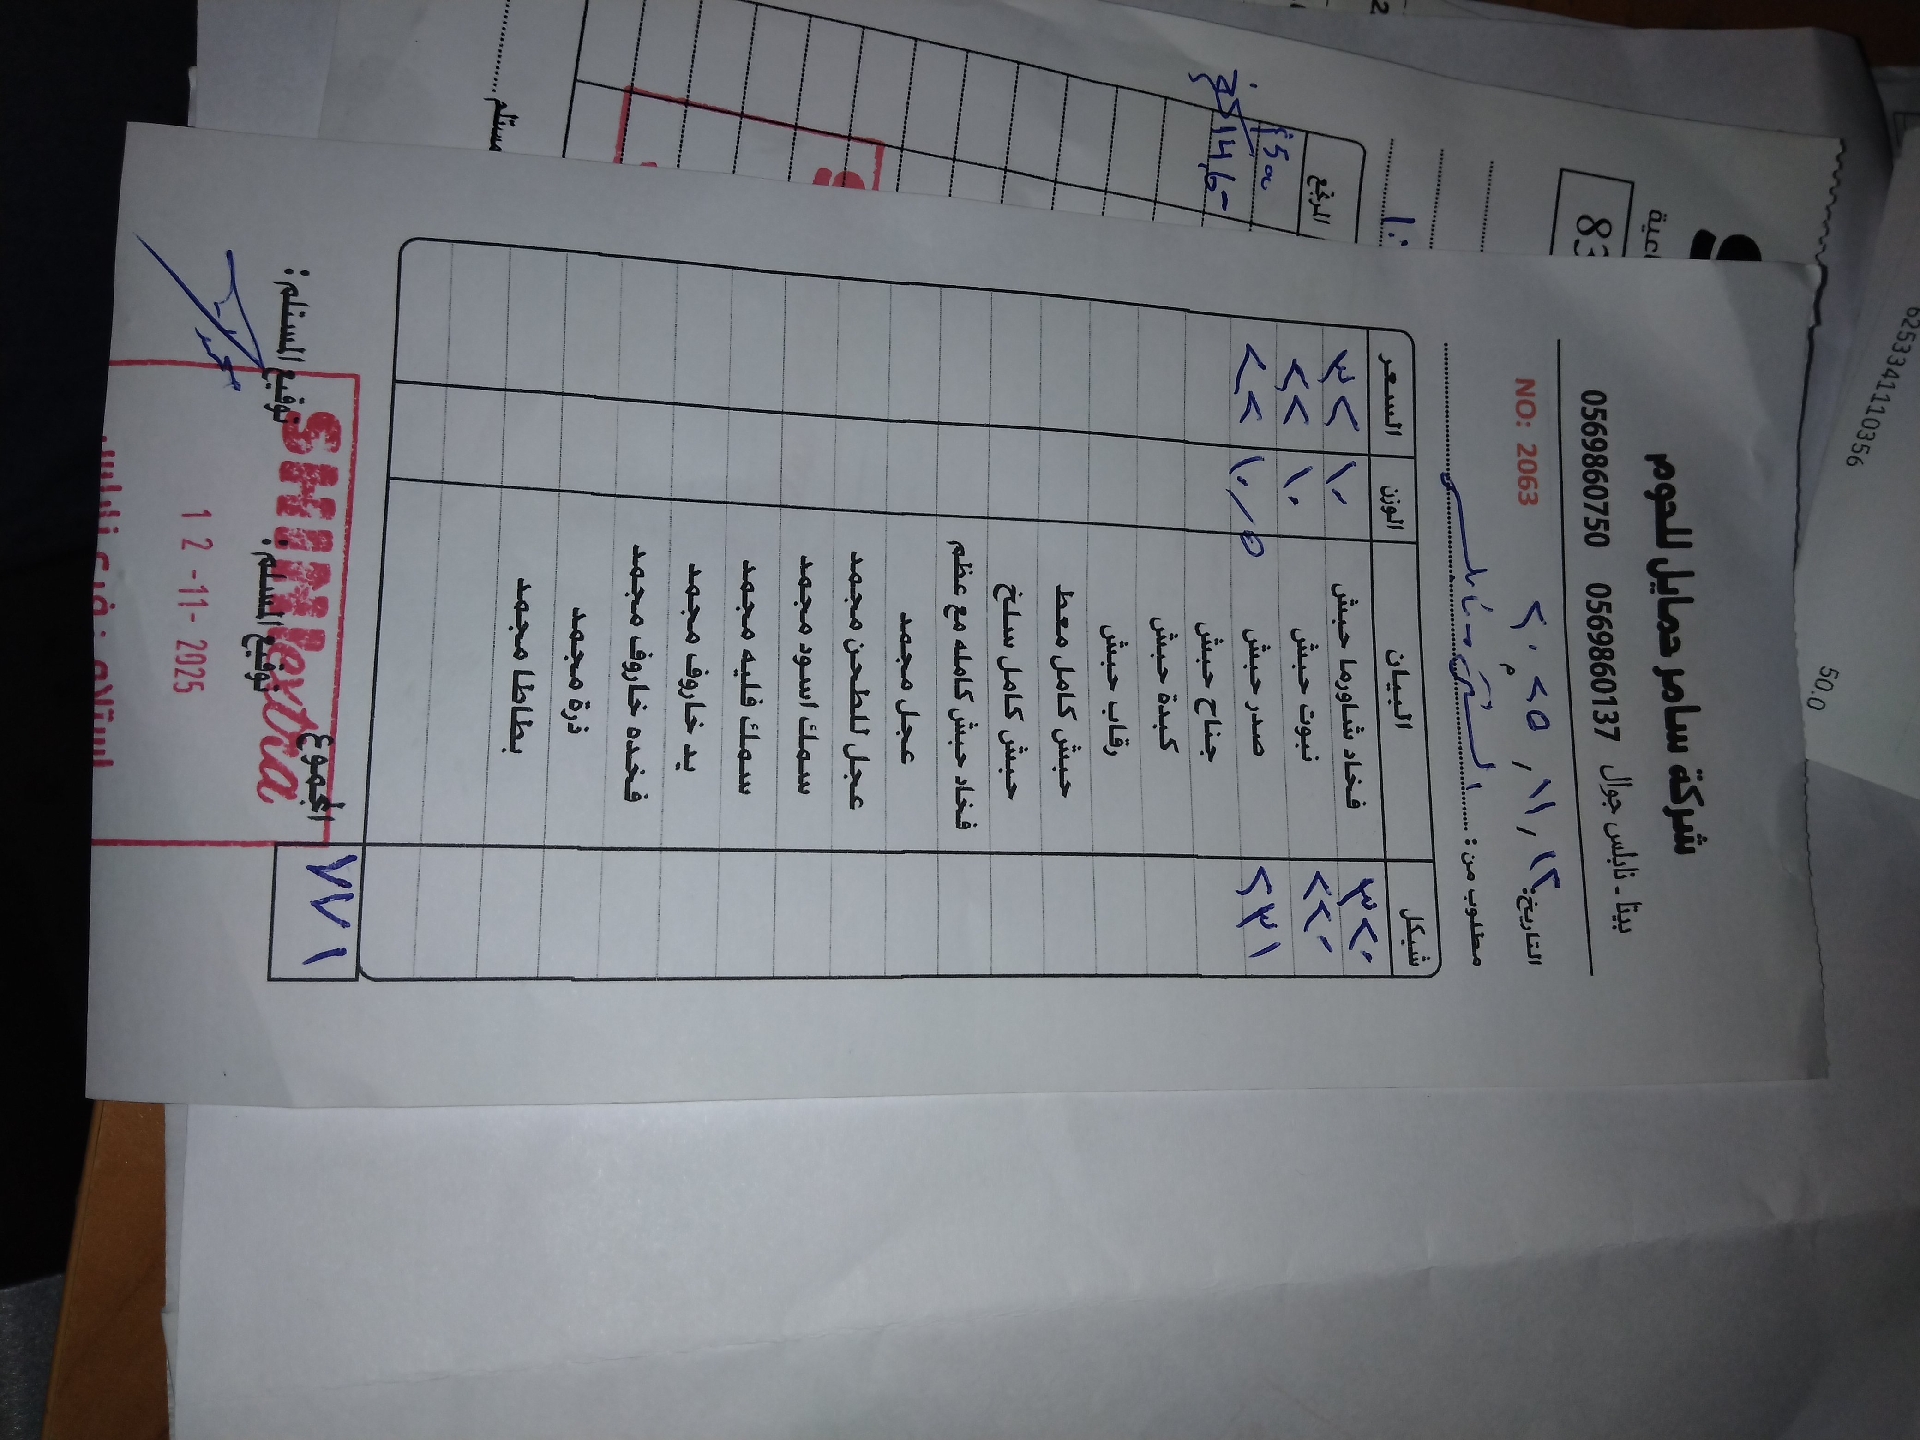 شركة سامر حمايل للحوم
بيتا - نابلس جوال 0569860137 0569860750
التاريخ: ١٢ / ١١ / ٢٠٢٥ م
NO: 2063
مطلوب من:
شيكل البيان الوزن السعر
٣٢٠ فخاد شاورما حبش ١٠ ٣٢
٢٢٠ نبوت حبش ١٠ ٢٢
٢٣١ صدر حبش ١٠,٥ ٢٢
جناح حبش
كبدة حبش
رقاب حبش
حبش كامل معط
حبش كامل سلخ
فخاد حبش كامله مع عظم
عجل مجمد
عجل للطحن مجمد
سمك اسود مجمد
سمك فليه مجمد
يد خاروف مجمد
فخده خاروف مجمد
ذرة مجمد
بطاطا مجمد
٧٧١ المجموع
توقيع المسلم: توقيع المستلم:
SHINI extra
12-11-2025
83
المرتجع
مستلم
6253341110356
50.0